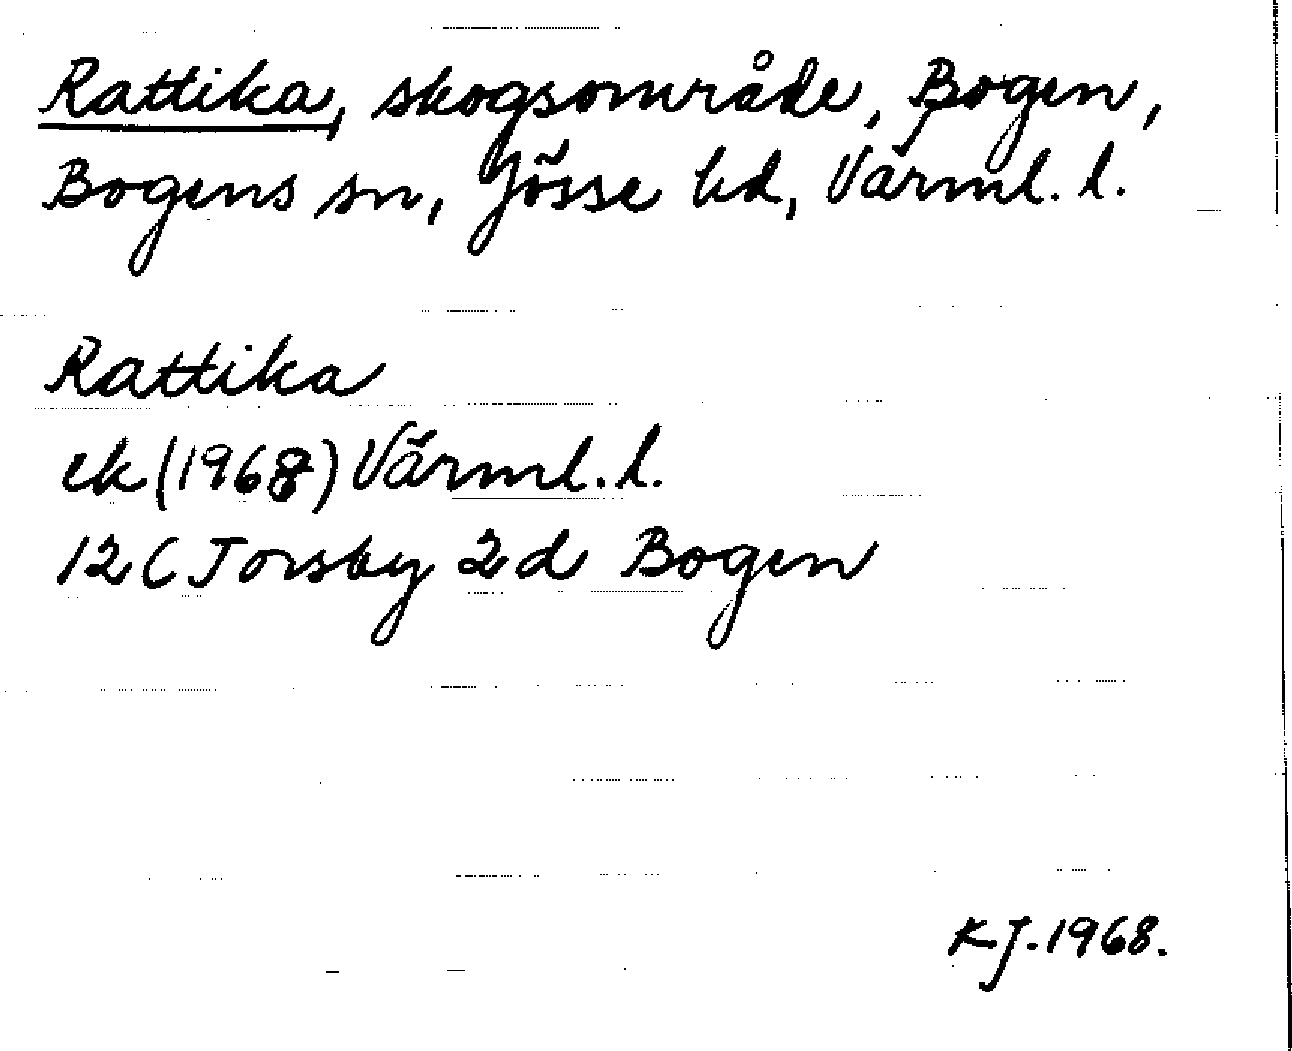 Rattika, skogsområde, Bogen,
Bogens sn, Jösse hd, Värml. l.
Rattika
ek (1968) Värml. l.
12 C Torsby 2 d Bogen
K.J. 1968.